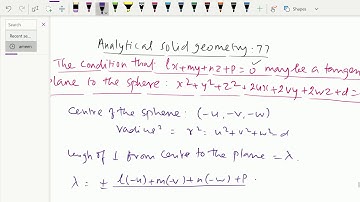 Shapes
Search
Recent se...
Analytical solid geometry: 77
The condition that lx+my+nz+p=0 may be a tangen
plane to the sphere: x²+y²+z²+2ux+2vy+2wz+d=
Centre of the sphere: (-u,-v,-w)
radius² = r²: u²+v²+w² d
length of ⊥ from centre to the plane = λ.
λ = ± l(-u)+m(-v)+n(-w)+p.